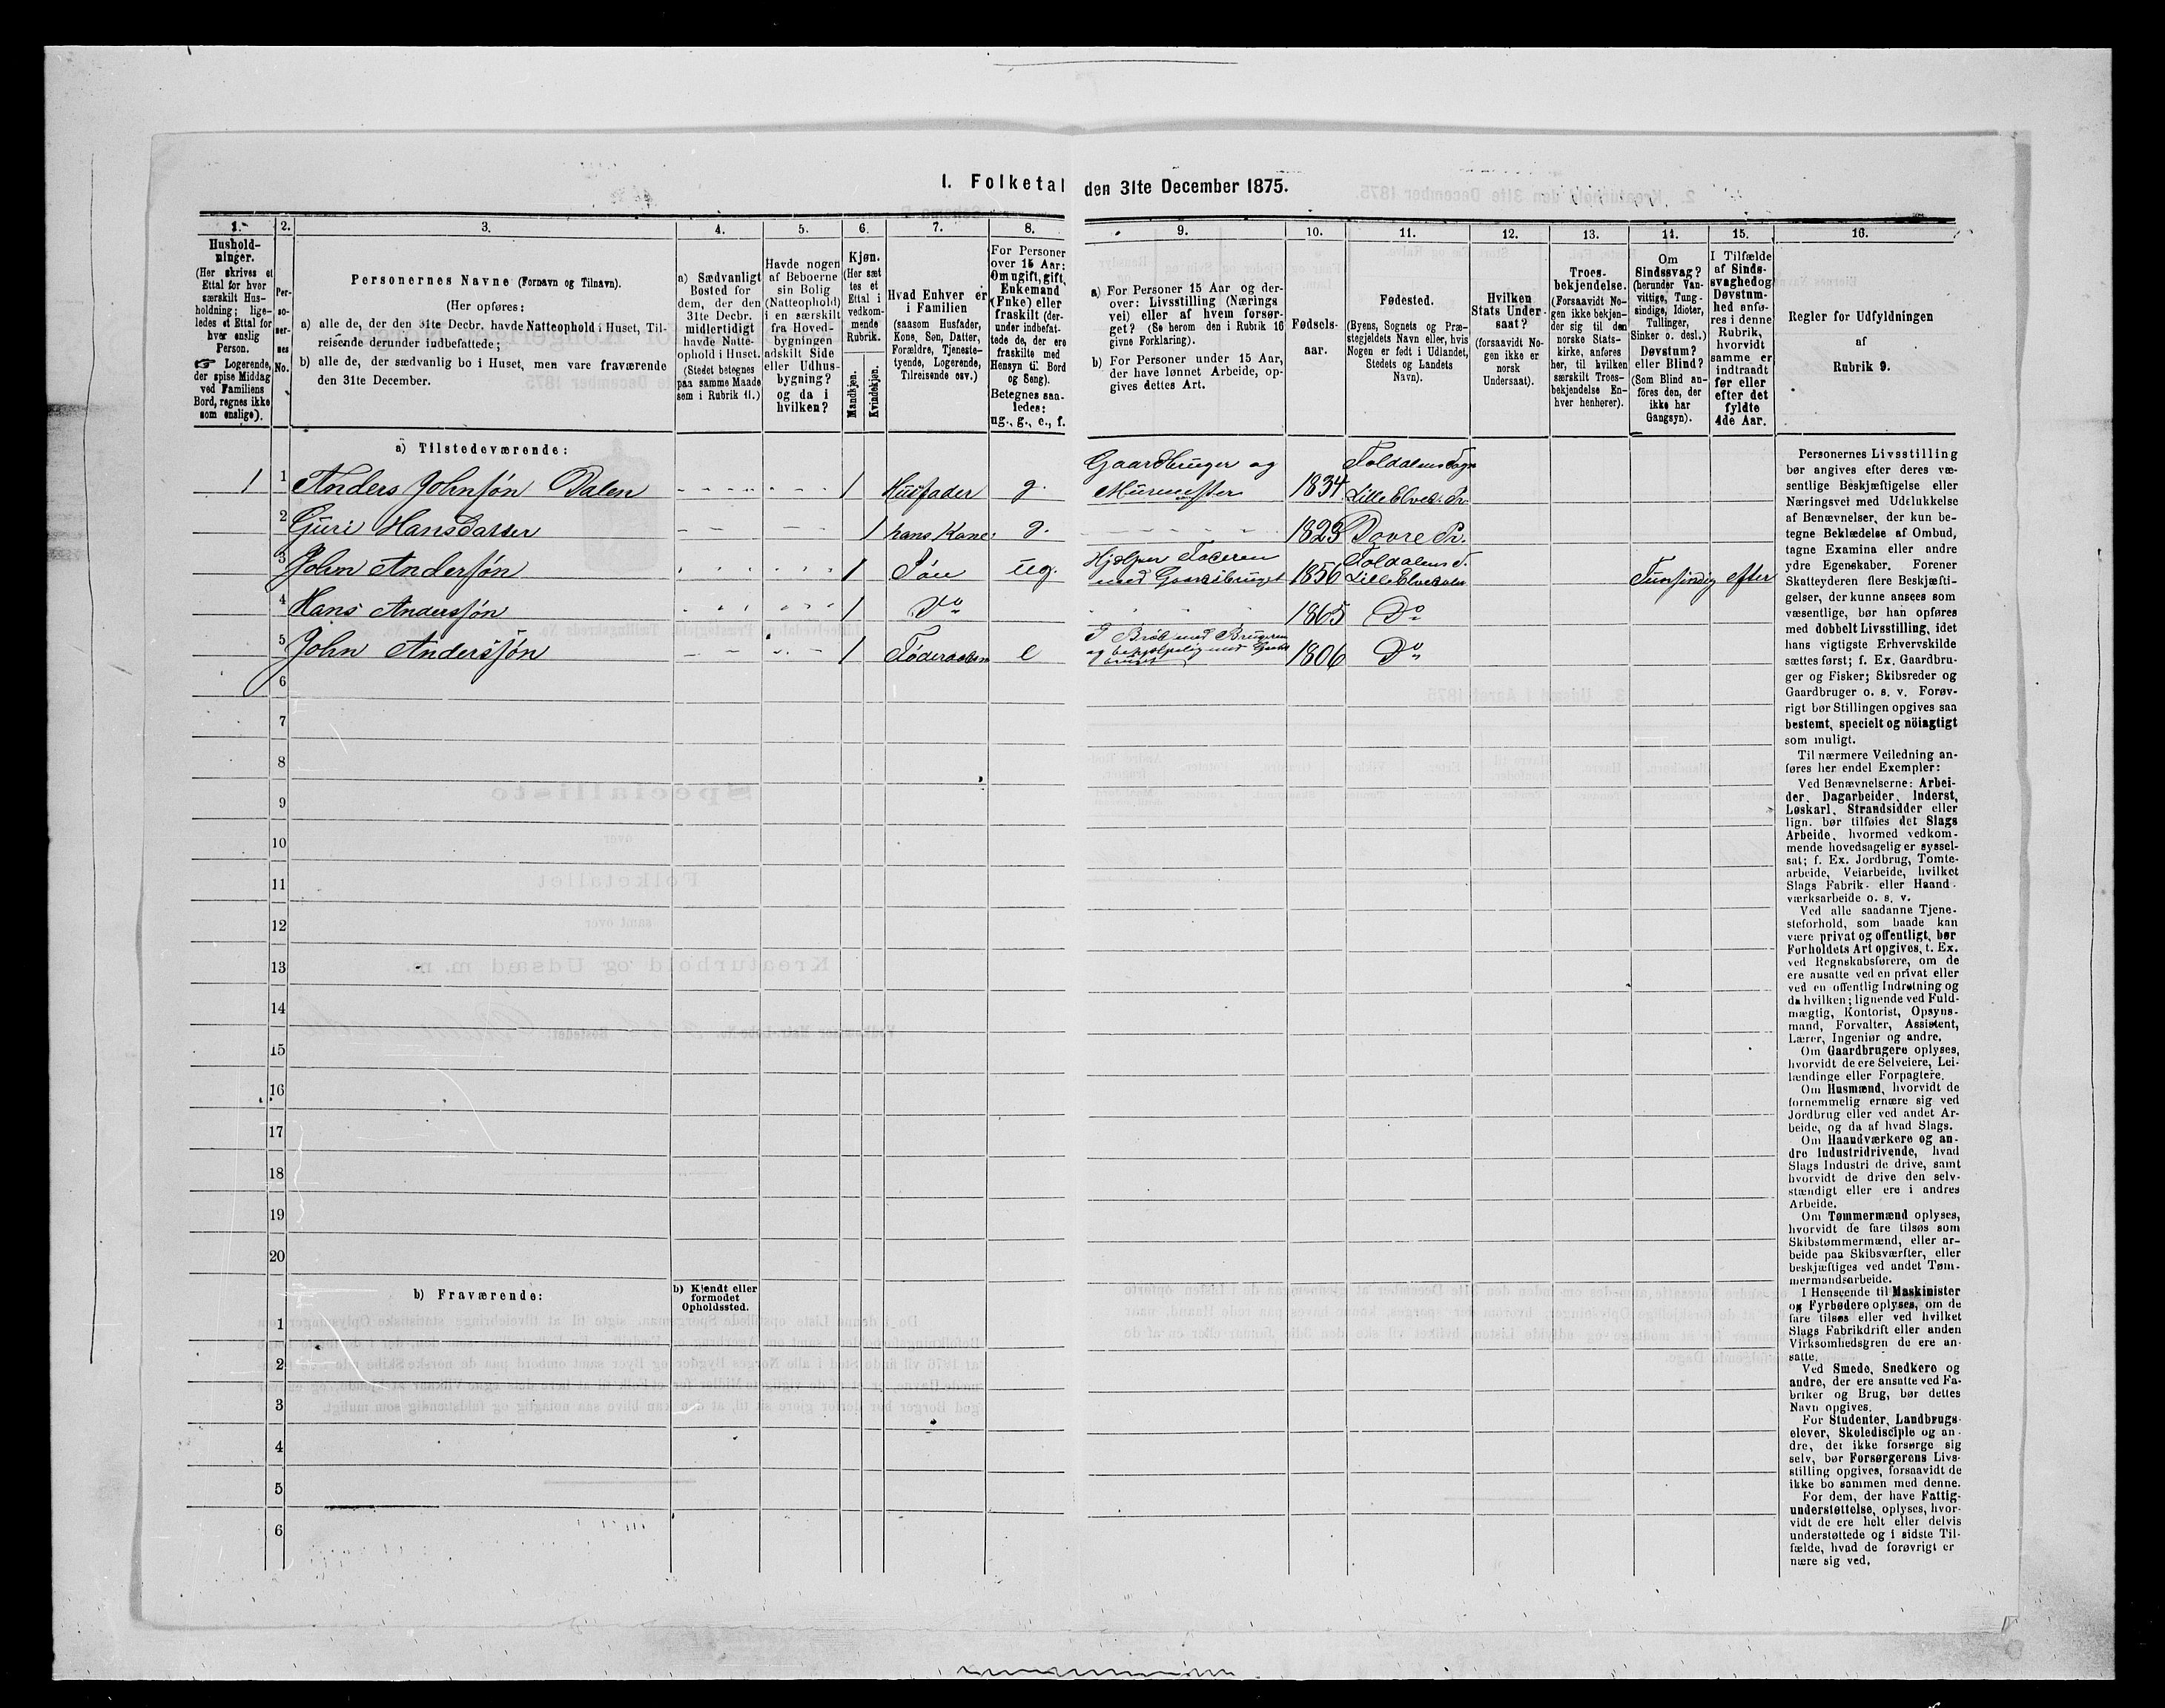 I. Folketal den 31te December 1875.
1.
Hushold-
ninger.
(Her skrives et
Ettal for hver
særskilt Hus-
holdning; lige-
ledes et Ettal for
hver enslig
Person.
☞ Logerende,
der spise Middag
ved Familiens
Bord, regnes ikke
som enslige).
2.
Per-
so-
ner-
nes
No.
3.
Personernes Navne (Fornavn og Tilnavn).
(Her opføres:
a) alle de, der den 31te Decbr. havde Natteophold i Huset, Til-
reisende derunder indbefattede;
b) alle de, der sædvanlig bo i Huset, men vare fraværende
den 31te December.
4.
a) Sædvanligt
Bosted for
dem, der den
31te Decbr.
midlertidigt
havde Natte-
ophold i Huset.
(Stedet betegnes
paa samme Maade
som i Rubrik 11.)
5.
Havde nogen
af Beboerne
sin Bolig
(Natteophold)
i en særskilt
fra Hoved-
bygningen
adskilt Side
eller Udhus-
bygning?
og da i
hvilken?
6.
Kjøn.
(Her sæt
tes et
Ettal i
vedkom-
mende
Rubrik.
Mandkjøn.
Kvindekjøn.
7.
Hvad Enhver er
i Familien
(saasom Husfader,
Kone, Søn, Datter,
Forældre, Tjeneste-
tyende, Logerende,
Tilreisende osv.)
8.
For Personer
over 15 Aar:
Om ugift, gift,
Enkemand
(Enke) eller
fraskilt (der-
under indbefat-
tede de, der ere
fraskilte med
Hensyn til Bord
og Seng).
Betegnes saa-
ledes:
ug., g., e., f.
9.
a) For Personer 15 Aar og der-
over: Livsstilling (Nærings
vei) eller af hvem forsør-
get? (Se herom den i Rubrik 16
givne Forklaring).
b) For Personer under 15 Aar,
der have lønnet Arbeide, op-
gives dettes Art.
10.
Fødsels-
aar.
11.
Fødested.
(Byens, Sognets og Præ-
stegjeldets Navn eller, hvis
Nogen er født i Udlandet,
Stedets og Landets
Navn).
12.
Hvilken
Stats Under-
saat?
(forsaavidt No-
gen ikke er
norsk
Undersaat).
13.
Troes-
bekjendelse.
(Forsaavidt No-
gen ikke bekjen-
der sig til den
norske Stats-
kirke, anføres
her, til hvilken
særskilt Troes-
bekjendelse En-
hver henhører).
14.
Om
Sindssvag?
(herunder Van-
vittige, Tung-
sindige, Idioter,
Tullinger,
Sinker o. desl.)
Døvstum?
eller Blind?
(Som Blind an-
föres den, der
ikke har
Gangsyn).
15.
I Tilfælde
af Sinds-
svaghedog
Døvstum-
hed anfø-
res i denne
Rubrik,
hvorvidt
samme er
indtraadt
før eller
efter det
fyldte
4de Aar.
16.
Regler for Udfyldningen
af
Rubrik 9.
a) Tilstedeværende:
1 1 Anders Johnsøn Dalen 1 Husfader g. Gaardbruger og Muremester 1834 Foldalens Sogn Lille Elved. Pr.
2 Guri Hansdatter 1 hans Kone g. 1823 Dovre Pr.
3 John Andersøn 1 Søn ug. Hjelper Faderen med Gaardsbruget 1856 Foldalens S. Lille Elvedalen Tunsindig efter
4 Hans Anderssøn 1 Do 1865 Do
5 John Anderssøn 1 Føderaadsm e I Brød med Brugeren og behjelpelig med Gaards bruget 1806 Do
6
7
8
9
10
11
12
13
14
15
16
17
18
19
20
b) Fraværende:
b) Kjendt eller
formodet
Opholdssted.
1
2
3
4
5
6
Personernes Livsstilling
bør angives efter deres væ-
sentlige Beskjæftigelse eller
Næringsvei med Udelukkelse
af Benævnelser, der kun be-
tegne Beklædelse af Ombud,
tagne Examina eller andre
ydre Egenskaber. Forener
Skatteyderen flere Beskjæfti-
gelser, der kunne ansees som
væsentlige, bør han opføres
med dobbelt Livsstilling, idet
hans vigtigste Erhvervskilde
sættes først; f. Ex. Gaardbru-
ger og Fisker; Skibsreder og
Gaardbruger o. s. v. Forøv-
rigt bør Stillingen opgives saa
bestemt, specielt og nöiagtigt
som muligt.
Til nærmere Veiledning an-
føres her endel Exempler:
Ved Benævnelserne: Arbei-
der, Dagarbeider, Inderst,
Løskarl, Strandsidder eller
lign. bør tilføies det Slags
Arbeide, hvormed vedkom-
mende hovedsagelig er syssel-
sat; f. Ex. Jordbrug, Tomte-
arbeide, Veiarbeide, hvilket
Slags Fabrik- eller Haand-
værksarbeide o. s. v.
Ved alle saadanne Tjene-
steforhold, som baade kan
være privat og offentligt, bør
Forholdets Art opgives, t. Ex.
ved Regnskabsførere, om de
ere ansatte ved en privat eller
ved en offentlig Indretning og
da hvilken; lignende ved Fuld-
mægtig, Kontorist, Opsyns-
mand, Forvalter, Assistent,
Lærer, Ingeniør og andre.
Om Gaardbrugere oplyses,
hvorvidt de ere Selveiere, Lei-
lændinge eller Forpagtere.
Om Husmænd, hvorvidt de
fornemmelig ernære sig ved
Jordbrug eller ved andet Ar-
beide, og da af hvad Slags.
Om Haandværkere og an-
dre Industridrivende, hvad
Slags Industri de drive, samt
hvorvidt de drive den selv-
stændigt eller ere i andres
Arbeide.
Om Tømmermænd oplyses,
hvorvidt de fare tilsøs som
Skibstømmermænd, eller ar-
beide paa Skibsværfter, eller
beskjæftiges ved andet Tøm-
mermandsarbeide.
I Henseende til Maskinister
og Fyrbødere oplyses, om de
fare tilsøs eller ved hvilket
Slags Fabrikdrift eller anden
Virksomhedsgren de ere an-
satte.
Ved Smede, Snedkere og
andre, der ere ansatte ved Fa-
briker og Brug, bør dettes
Navn opgives.
For Studenter, Landbrugs-
elever, Skoledisciple og an-
dre, der ikke forsørge sig
selv, bør Forsørgerens Livs-
stilling opgives, forsaavidt de
ikke bo sammen med denne.
For dem, der have Fattig-
understøttelse, oplyses, hvor-
vidt de ere helt eller delvis
understøttede og i sidste Til-
fælde, hvad de forøvrigt er
nære sig ved.